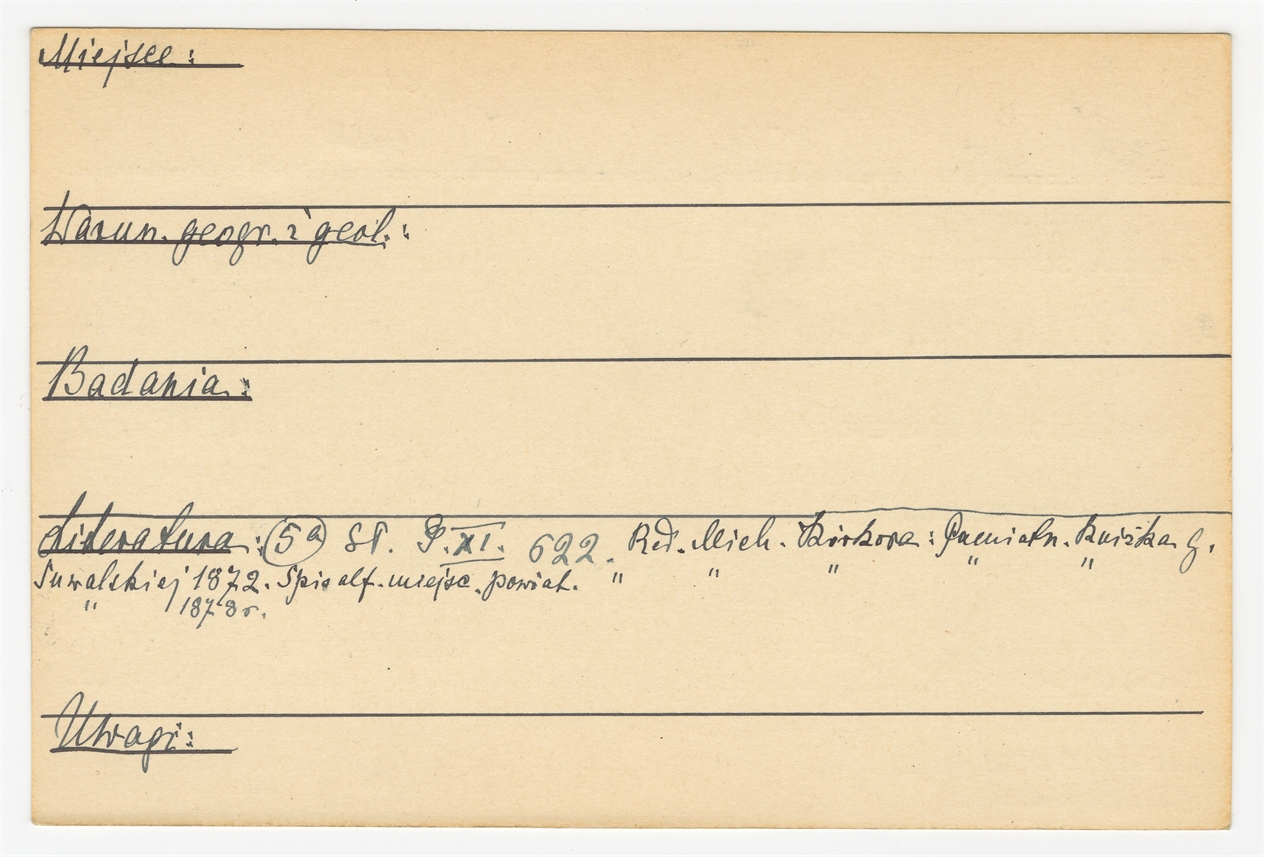 Miejsce:
Warun. geogr. i geol.:
Badania:
Literatura: (5a) St. P. XI. 622. Red. Mich. Kirkora: Pamiatn. Kniżka g.
Suwalskiej 1872. Spis alf. miejsc. powiat. " " " " "
" 1878 r.
Uwagi: